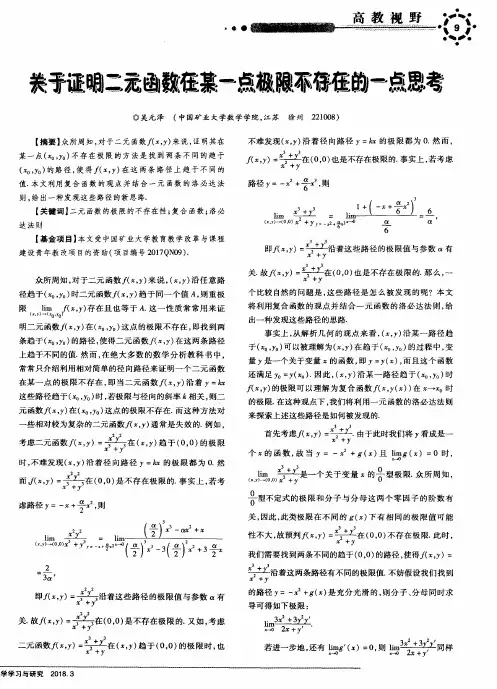 高教视野
9
关于证明二元函数在某一点极限不存在的一点思考
◎吴元泽 (中国矿业大学数学学院,江苏 徐州 221008)
【摘要】众所周知,对于二元函数f(x,y)来说,证明其在
某一点(x₀,y₀)不存在极限的方法是找到两条不同的趋于
(x₀,y₀)的路径,使得f(x,y)在这两条路径上趋于不同的
值.本文利用复合函数的观点并结合一元函数的洛必达法
则,给出一种发现这些路径的新思路.
【关键词】二元函数的极限的不存在性;复合函数;洛必
达法则
【基金项目】本文受中国矿业大学教育教学改革与课程
建设青年教改项目的资助(项目编号2017QN09).
众所周知,对于二元函数f(x,y)来说,(x,y)沿任意路
径趋于(x₀,y₀)时二元函数f(x,y)趋于同一个值A,则重极
限 lim_{(x,y)→(x₀,y₀)} f(x,y)存在且也等于A.这一性质常常用来证
明二元函数f(x,y)在(x₀,y₀)这点的极限不存在,即找到两
条趋于(x₀,y₀)的路径,使得二元函数f(x,y)在这两条路径
上趋于不同的值.然而,在绝大多数的数学分析教科书中,
常常只介绍利用相对简单的径向路径来证明一个二元函数
在某一点的极限不存在,即当二元函数f(x,y)沿着y=kx
这些路径趋于(x₀,y₀)时,若极限与径向的斜率k相关,则二
元函数f(x,y)在(x₀,y₀)这点的极限不存在.而这种方法对
一些相对较为复杂的二元函数f(x,y)通常是失效的.例如,
考虑二元函数f(x,y)=x²y²/(x³+y³)在(x,y)趋于(0,0)的极限
时,不难发现(x,y)沿着径向路径y=kx的极限都为0.然
而,f(x,y)=x²y²/(x³+y³)在(0,0)是不存在极限的.事实上,若考
虑路径y=-x+(α/2)x²,则
=2/(3α),
即f(x,y)=x²y²/(x³+y³)沿着这些路径的极限值与参数α有
关.故f(x,y)=x²y²/(x³+y³)在(0,0)是不存在极限的.又如,考虑
二元函数f(x,y)=(x³+y³)/(x²+y)在(x,y)趋于(0,0)的极限时,也
不难发现(x,y)沿着径向路径y=kx的极限都为0.然而,
f(x,y)=(x³+y³)/(x²+y)在(0,0)也是不存在极限的.事实上,若考虑
即f(x,y)=(x³+y³)/(x²+y)沿着这些路径的极限值与参数α有
关.故f(x,y)=(x³+y³)/(x²+y)在(0,0)也是不存在极限的.那么,一
个比较自然的问题是,这些路径是怎么被发现的呢?本文
将利用复合函数的观点并结合一元函数的洛必达法则,给
出一种发现这些路径的思路.
事实上,从解析几何的观点来看,(x,y)沿某一路径趋
于(x₀,y₀)可以被理解为(x,y)在趋于(x₀,y₀)的过程中,变
量y是一个关于变量x的函数,即y=y(x),而且这个函数
还满足y₀=y(x₀).因此,(x,y)沿某一路径趋于(x₀,y₀)时
f(x,y)的极限可以理解为复合函数f(x,y(x))在x→x₀时
的极限.在这种观点下,我们将利用一元函数的洛必达法则
来探索上述这些路径是如何被发现的.
首先考虑f(x,y)=(x³+y³)/(x²+y).由于此时我们将y看成是一
个x的函数,故当y=-x²+g(x)且lim_{x→0} g(x)=0时,
lim_{(x,y)→(0,0)} (x³+y³)/(x²+y)是一个关于变量x的0/0型极限.众所周知,
0/0型不定式的极限和分子与分母这两个零因子的阶数有
关,因此,此类极限在不同的g(x)下有相同的极限值可能
性不大,故预判f(x,y)=(x³+y³)/(x²+y)在(0,0)不存在极限.此时,
我们需要找到两条不同的趋于(0,0)的路径,使得f(x,y)=
(x³+y³)/(x²+y)沿着这两条路径有不同的极限值.不妨假设我们找到
的路径y=-x²+g(x)是充分光滑的,则分子、分母同时求
导可得如下极限:
lim_{x→0} (3x²+3y²y′)/(2x+y′).
若进一步地,还有lim_{x→0} g′(x)=0,则lim_{x→0} (3x²+3y²y′)/(2x+y′)同样
学学习与研究 2018.3